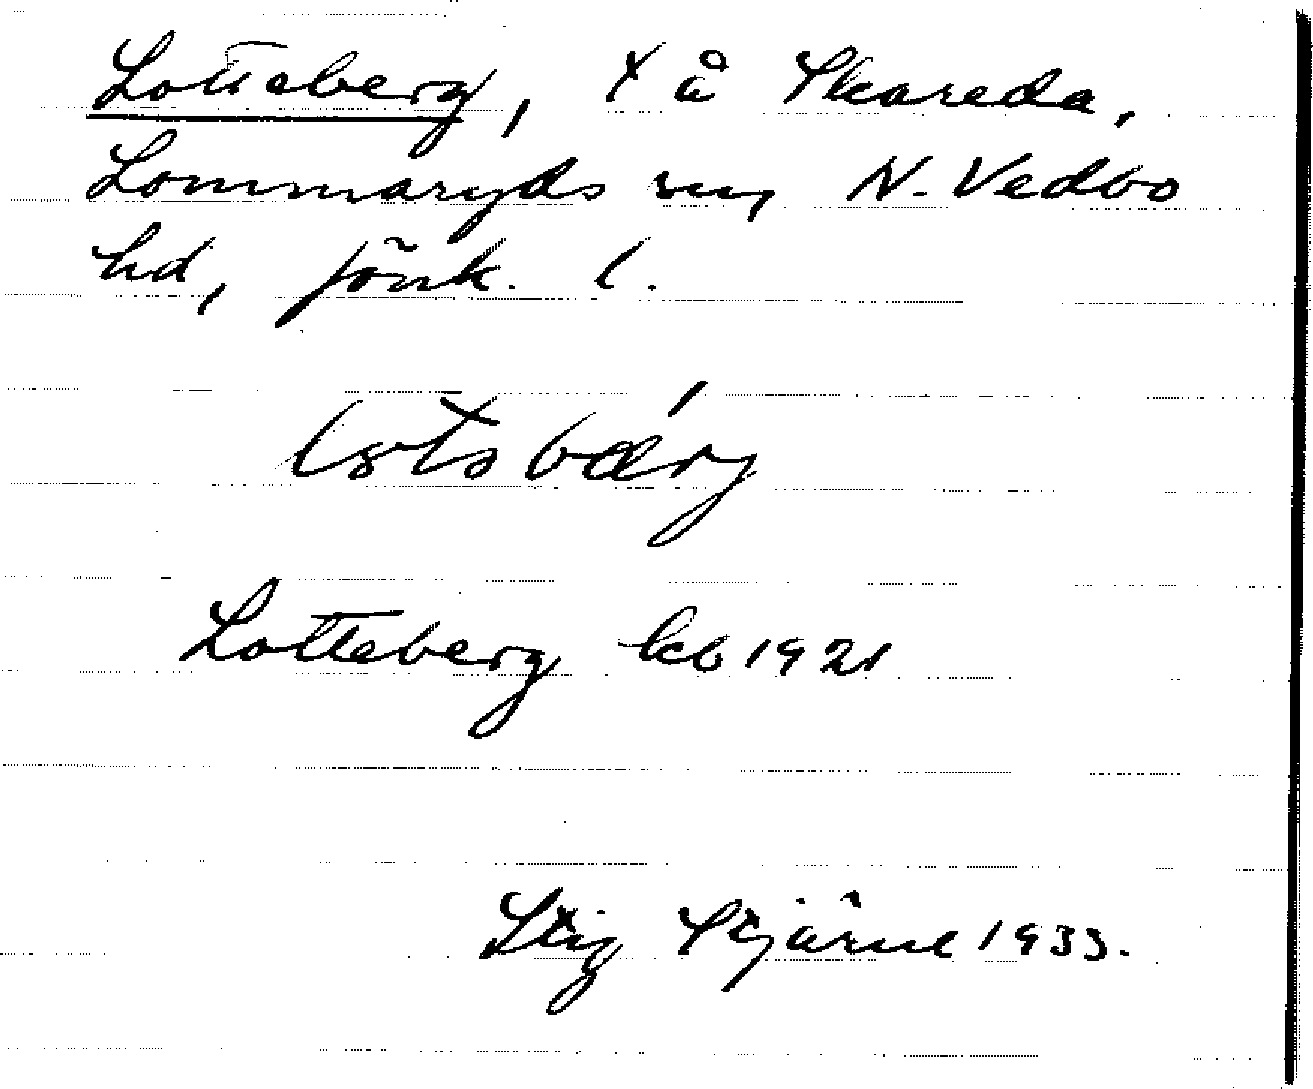 Lotteberg, x å Skareda,
Lommaryds sn, N. Vedbo
hd, Jönk. l.
Lotteberg kb 1921
Stig Stjärne 1933.